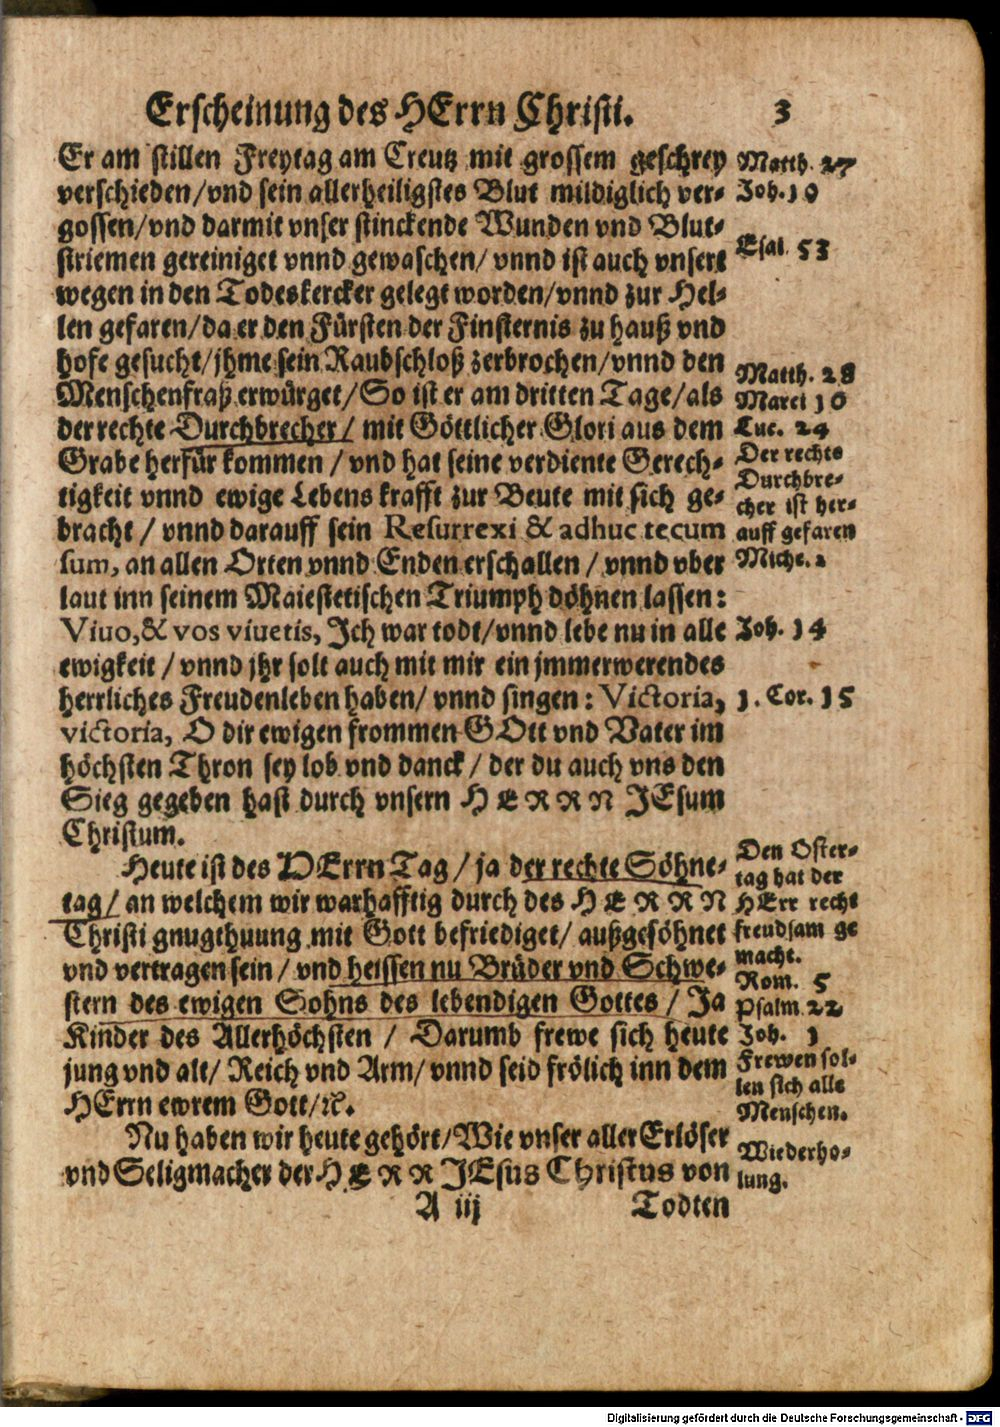 Erscheinung des HErrn Christi. 3
Er am stillen Freytag am Creutz mit grossem geschrey
verschieden/vnd sein allerheiligstes Blut mildiglich ver-
gossen/vnd darmit vnser stinckende Wunden vnd Blut-
striemen gereiniget vnnd gewaschen/ vnnd ist auch vnsert
wegen in den Todeskercker gelegt worden/vnnd zur Hel-
len gefaren/da er den Fürsten der Finsternis zu hauß vnd
hofe gesucht/jhme sein Raubschloß zerbrochen/vnnd den
Menschenfraß erwürget/So ist er am dritten Tage/als
der rechte Durchbrecher/ mit Göttlicher Glori aus dem
Grabe herfür kommen / vnd hat seine verdiente Gerech-
tigkeit vnnd ewige Lebens krafft zur Beute mit sich ge-
bracht / vnnd darauff sein Resurrexi & adhuc tecum
sum, an allen Orten vnnd Enden erschallen / vnnd vber
laut inn seinem Maiestetischen Triumph döhnen lassen:
Viuo,& vos viuetis, Ich war todt/vnnd lebe nu in alle
ewigkeit / vnnd jhr solt auch mit mir ein jmmerwerendes
herrliches Freudenleben haben/ vnnd singen: Victoria,
victoria, O dir ewigen frommen GOtt vnd Vater im
höchsten Thron sey lob vnd danck / der du auch vns den
Sieg gegeben hast durch vnsern HERRN JEsum
Christum.
Heute ist des HErrn Tag / ja der rechte Söhne-
tag/ an welchem wir warhafftig durch des HERRN
Christi gnugthuung mit Gott befriediget/ außgesöhnet
vnd vertragen sein / vnd heissen nu Brüder vnd Schwe-
stern des ewigen Sohns des lebendigen Gottes / Ja
Kinder des Allerhöchsten / Darumb frewe sich heute
jung vnd alt/ Reich vnd Arm/ vnnd seid frölich inn dem
HErrn ewrem Gott/ꝛc.
Nu haben wir heute gehört/Wie vnser aller Erlöser
vnd Seligmacher der HERR JEsus Christus von
A iij Todten
Matth. 27
Joh. 19
Esai. 53
Matth. 28
Marci 16
Luc. 24
Der rechte
Durchbre-
cher ist her-
auff gefaren
Miche. 2
Joh. 14
1. Cor. 15
Den Oster-
tag hat der
HErr recht
freudsam ge
macht.
Rom. 5
Psalm 22
Joh. 1
Frewen sol-
len sich alle
Menschen.
Wiederho-
lung.
Digitalisierung gefördert durch die Deutsche Forschungsgemeinschaft - DFG